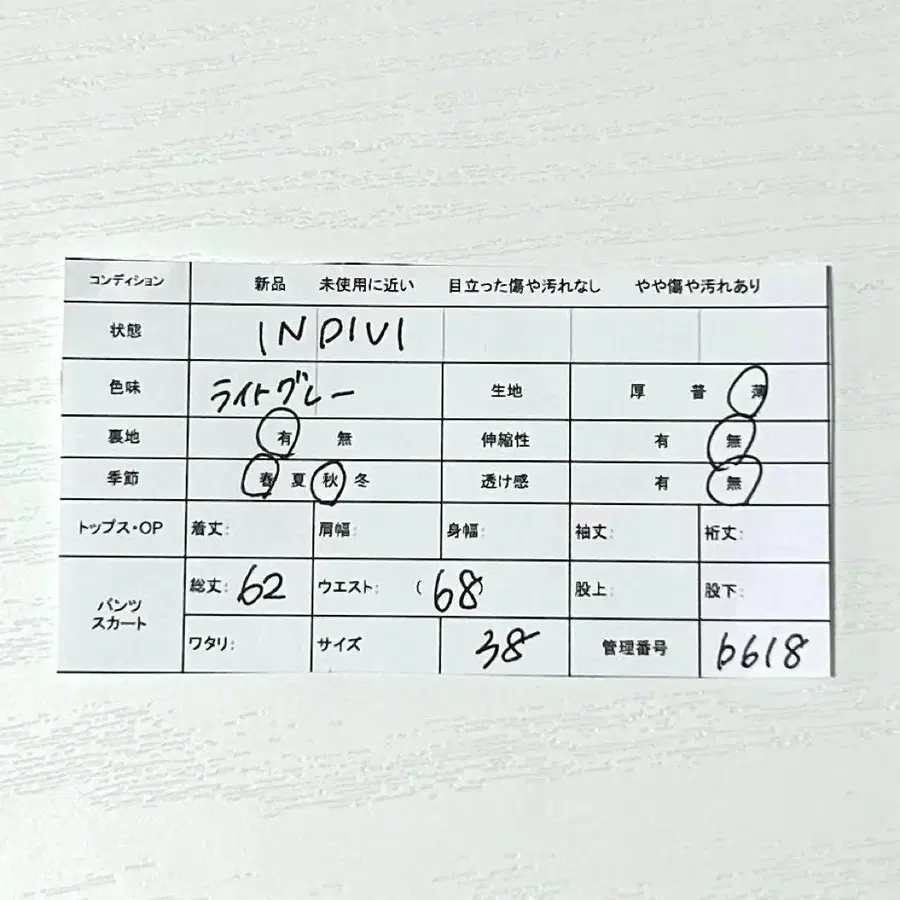 コンディション 新品 未使用に近い 目立った傷や汚れなし やや傷や汚れあり
状態 INDIVI
色味 ライトグレー 生地 厚 普 薄
裏地 有 無 伸縮性 有 無
季節 春 夏 秋 冬 透け感 有 無
トップス・OP 着丈: 肩幅: 身幅: 袖丈: 裄丈:
パンツ スカート 総丈: 62 ウエスト: (68) 股上: 股下:
ワタリ: サイズ 38 管理番号 b618